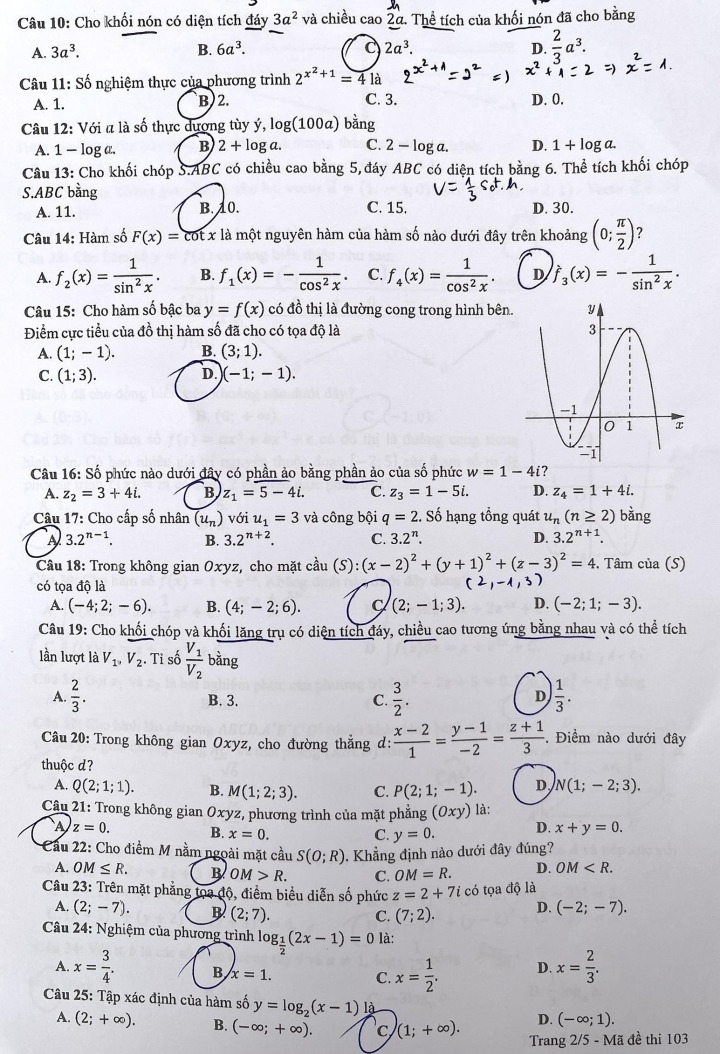 Câu 10: Cho khối nón có diện tích đáy 3a² và chiều cao 2a. Thể tích của khối nón đã cho bằng
h
A. 3a³. B. 6a³. C. 2a³. D. 2/3 a³.
Câu 11: Số nghiệm thực của phương trình 2^(x²+1) = 4 là 2^(x²+1) = 2² => x²+1 = 2 => x² = 1.
A. 1. B. 2. C. 3. D. 0.
Câu 12: Với a là số thực dương tùy ý, log(100a) bằng
A. 1 − log a. B. 2 + log a. C. 2 − log a. D. 1 + log a.
Câu 13: Cho khối chóp S.ABC có chiều cao bằng 5, đáy ABC có diện tích bằng 6. Thể tích khối chóp
S.ABC bằng V = 1/3 Sđ.h.
A. 11. B. 10. C. 15. D. 30.
Câu 14: Hàm số F(x) = cot x là một nguyên hàm của hàm số nào dưới đây trên khoảng (0; π/2)?
A. f₂(x) = 1/sin² x. B. f₁(x) = − 1/cos² x. C. f₄(x) = 1/cos² x. D. f₃(x) = − 1/sin² x.
Câu 15: Cho hàm số bậc ba y = f(x) có đồ thị là đường cong trong hình bên.
Điểm cực tiểu của đồ thị hàm số đã cho có tọa độ là
A. (1; −1). B. (3; 1).
C. (1; 3). D. (−1; −1).
y
3
−1
O 1 x
−1
Câu 16: Số phức nào dưới đây có phần ảo bằng phần ảo của số phức w = 1 − 4i?
A. z₂ = 3 + 4i. B. z₁ = 5 − 4i. C. z₃ = 1 − 5i. D. z₄ = 1 + 4i.
Câu 17: Cho cấp số nhân (uₙ) với u₁ = 3 và công bội q = 2. Số hạng tổng quát uₙ (n ≥ 2) bằng
A. 3.2ⁿ⁻¹. B. 3.2ⁿ⁺². C. 3.2ⁿ. D. 3.2ⁿ⁺¹.
Câu 18: Trong không gian Oxyz, cho mặt cầu (S): (x − 2)² + (y + 1)² + (z − 3)² = 4. Tâm của (S)
có tọa độ là (2, -1, 3)
A. (−4; 2; −6). B. (4; −2; 6). C. (2; −1; 3). D. (−2; 1; −3).
Câu 19: Cho khối chóp và khối lăng trụ có diện tích đáy, chiều cao tương ứng bằng nhau và có thể tích
lần lượt là V₁, V₂. Tỉ số V₁/V₂ bằng
A. 2/3. B. 3. C. 3/2. D. 1/3.
Câu 20: Trong không gian Oxyz, cho đường thẳng d: (x−2)/1 = (y−1)/−2 = (z+1)/3. Điểm nào dưới đây
thuộc d?
A. Q(2; 1; 1). B. M(1; 2; 3). C. P(2; 1; −1). D. N(1; −2; 3).
Câu 21: Trong không gian Oxyz, phương trình của mặt phẳng (Oxy) là:
A. z = 0. B. x = 0. C. y = 0. D. x + y = 0.
Câu 22: Cho điểm M nằm ngoài mặt cầu S(O; R). Khẳng định nào dưới đây đúng?
A. OM ≤ R. B. OM > R. C. OM = R. D. OM < R.
Câu 23: Trên mặt phẳng tọa độ, điểm biểu diễn số phức z = 2 + 7i có tọa độ là
A. (2; −7). B. (2; 7). C. (7; 2). D. (−2; −7).
Câu 24: Nghiệm của phương trình log_(1/2) (2x − 1) = 0 là:
A. x = 3/4. B. x = 1. C. x = 1/2. D. x = 2/3.
Câu 25: Tập xác định của hàm số y = log₂(x − 1) là
A. (2; +∞). B. (−∞; +∞). C. (1; +∞). D. (−∞; 1).
Trang 2/5 - Mã đề thi 103